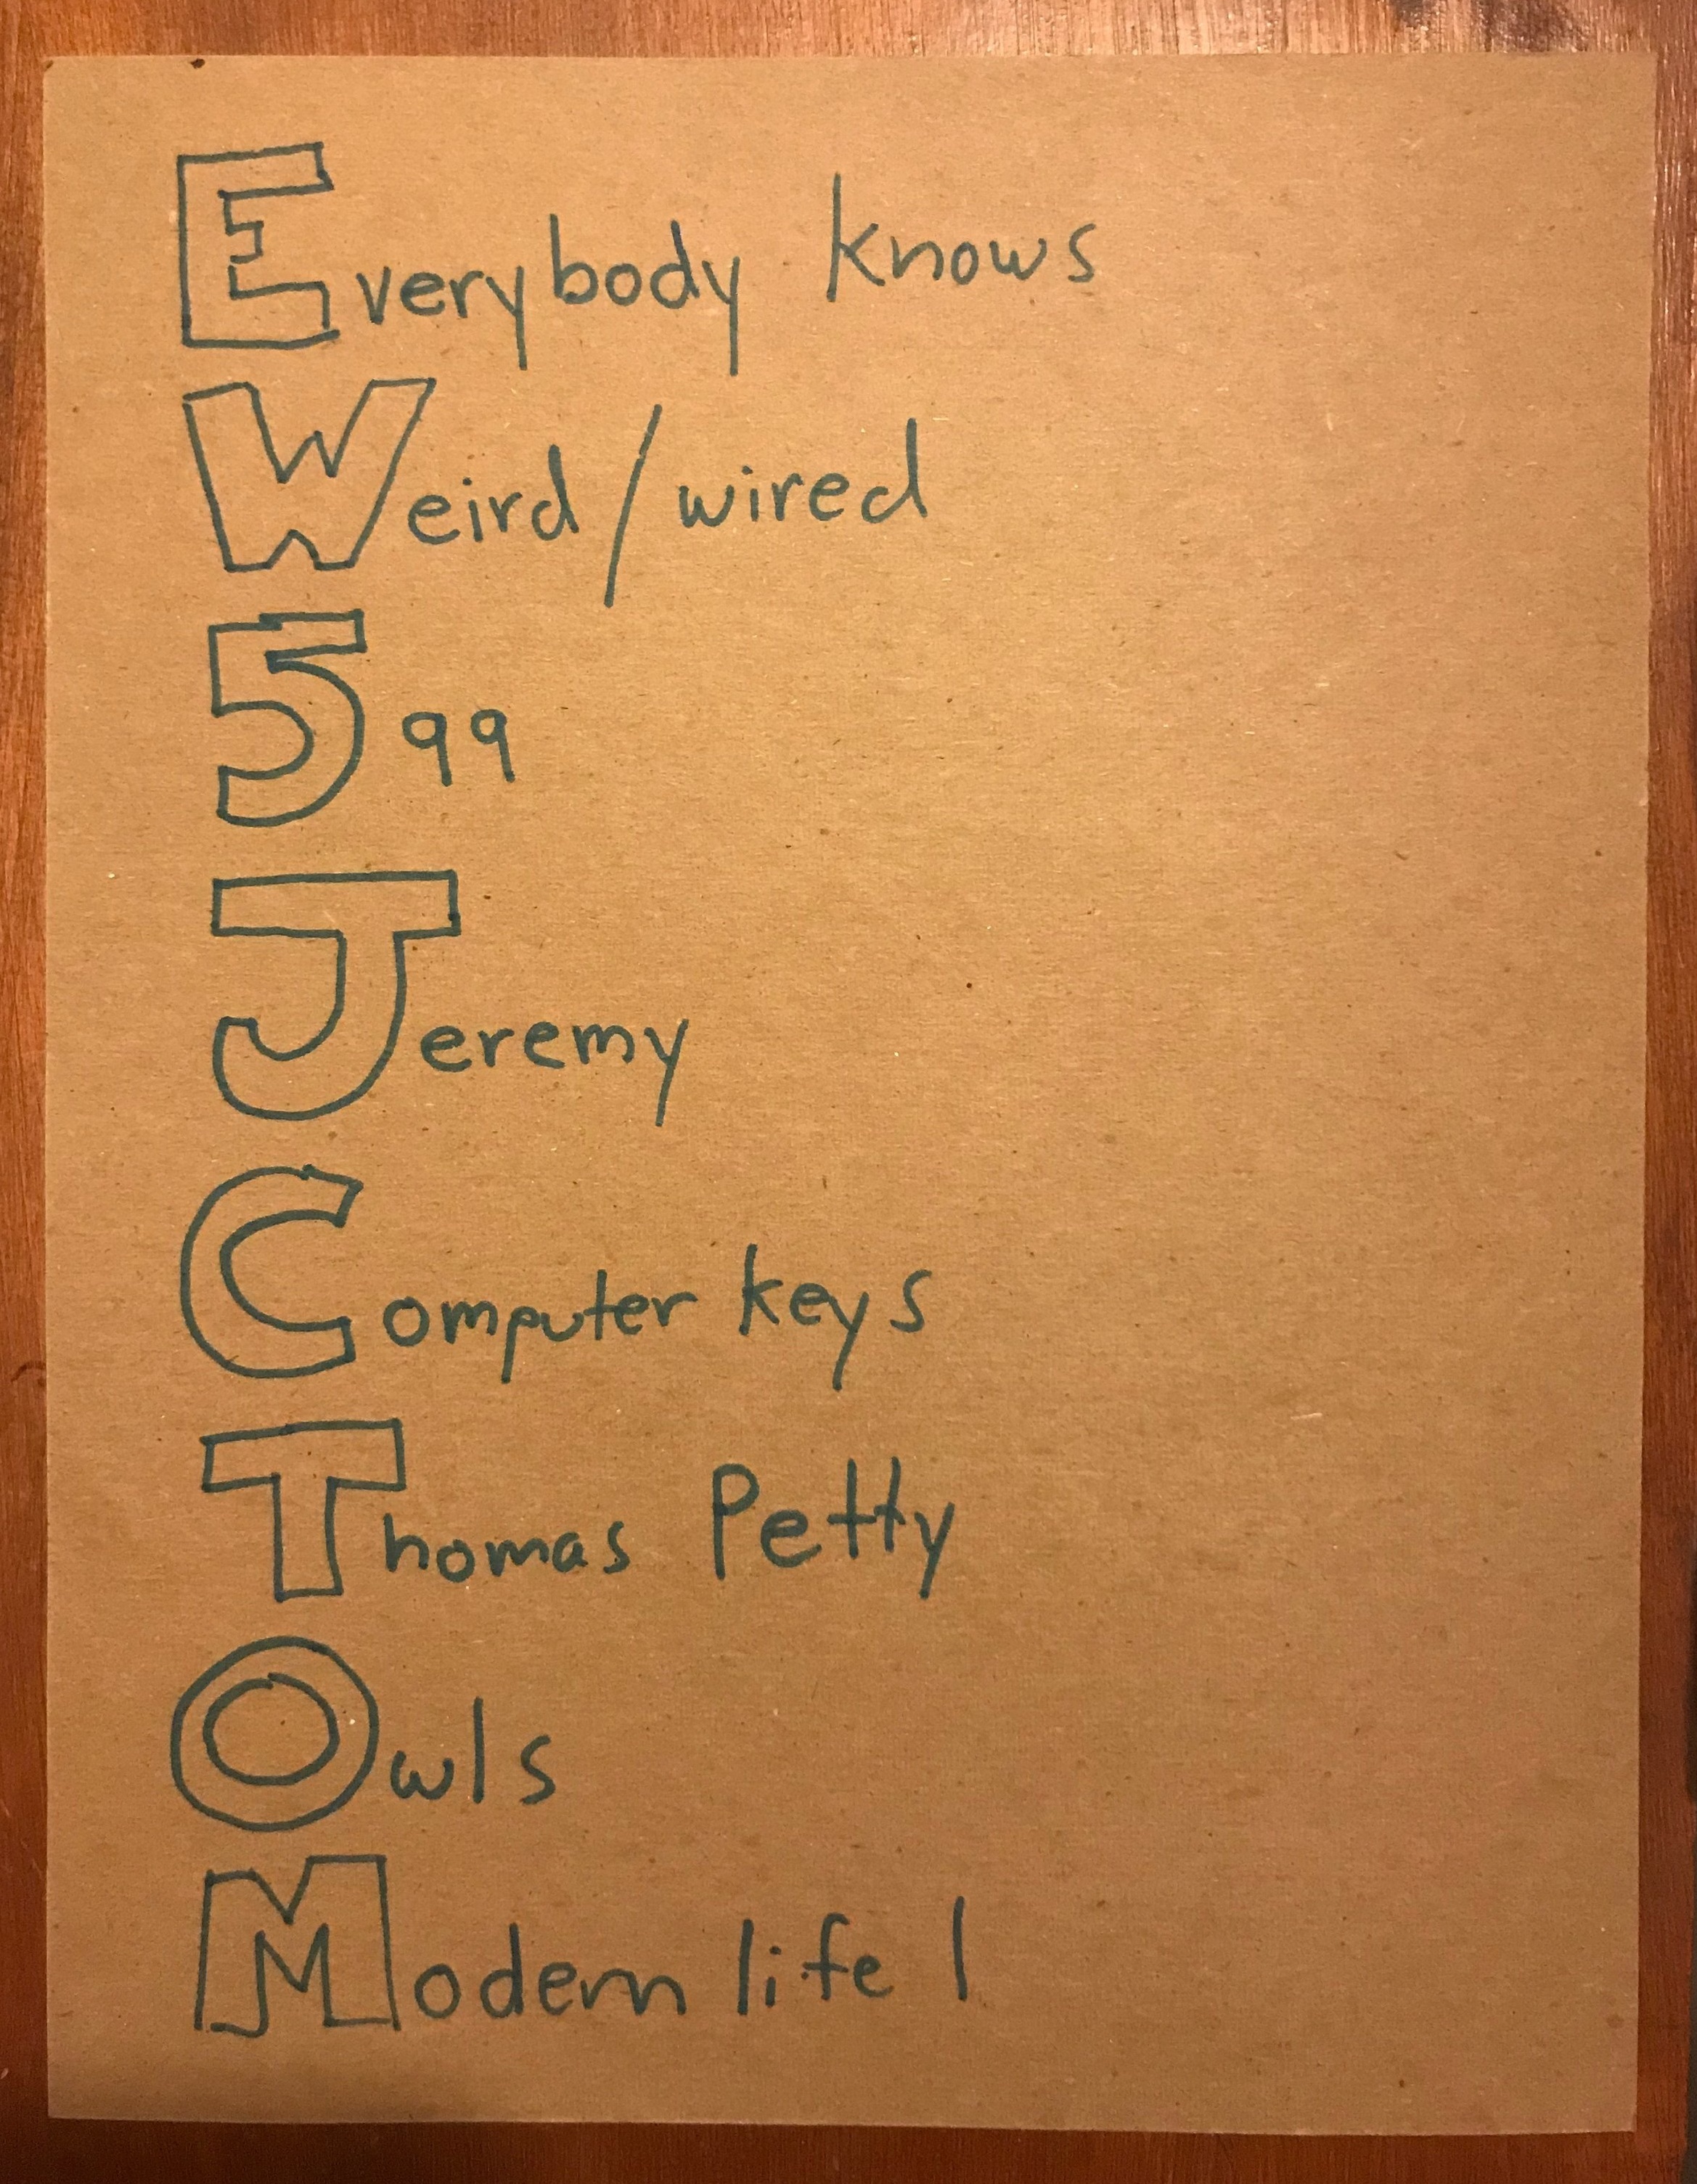 Everybody knows
Weird/wired
599
Jeremy
Computer keys
Thomas Petty
Owls
Modern life 1